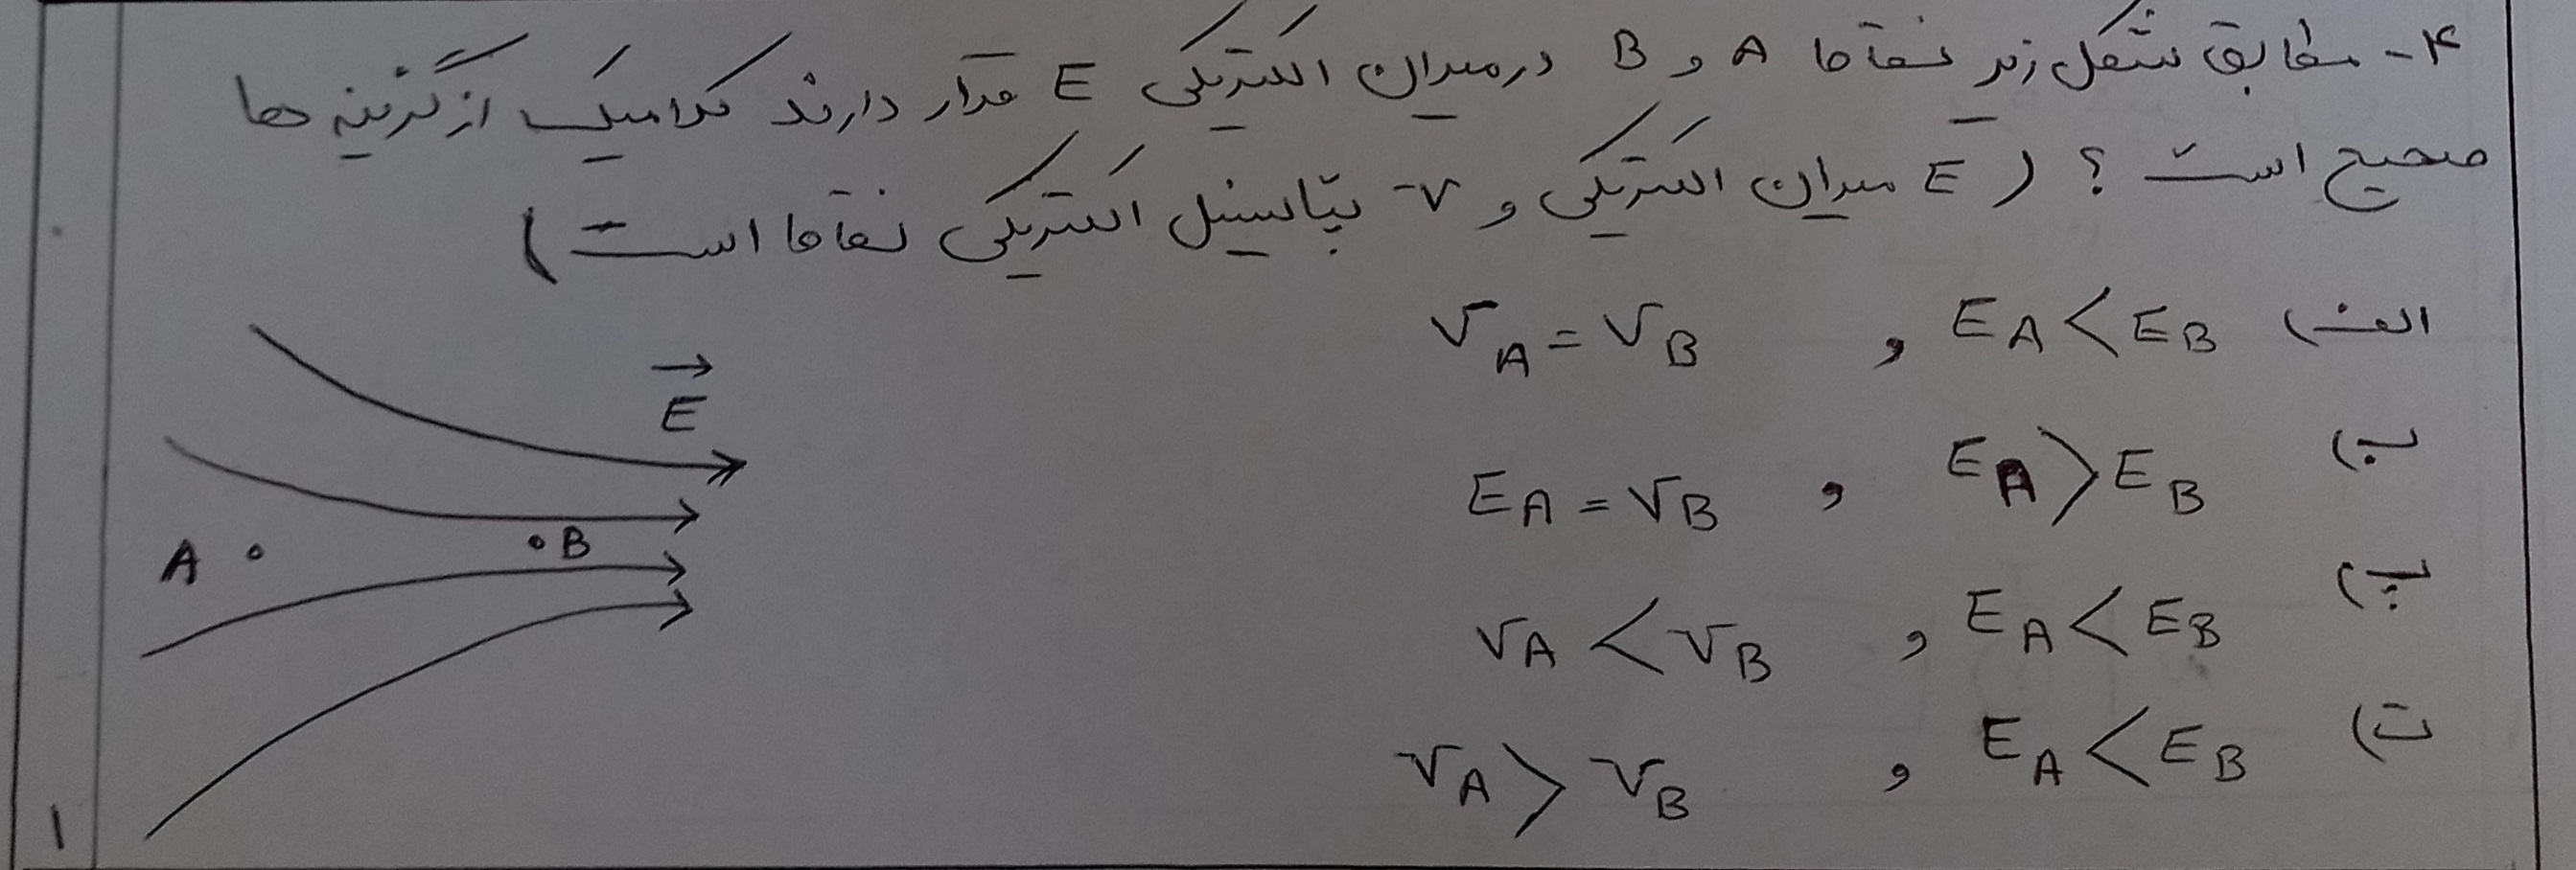 ۴- مطابق شکل زیر نقاط A و B در میدان الکتریکی E قرار دارند کدامیک از گزینه ها
صحیح است ؟ ( E میدان الکتریکی و V پتانسیل الکتریکی نقاط است )
الف) EA < EB , VA = VB
ب) EA > EB , EA = VB
پ) EA < EB , VA < VB
ت) EA < EB , VA > VB
E
A B
۱